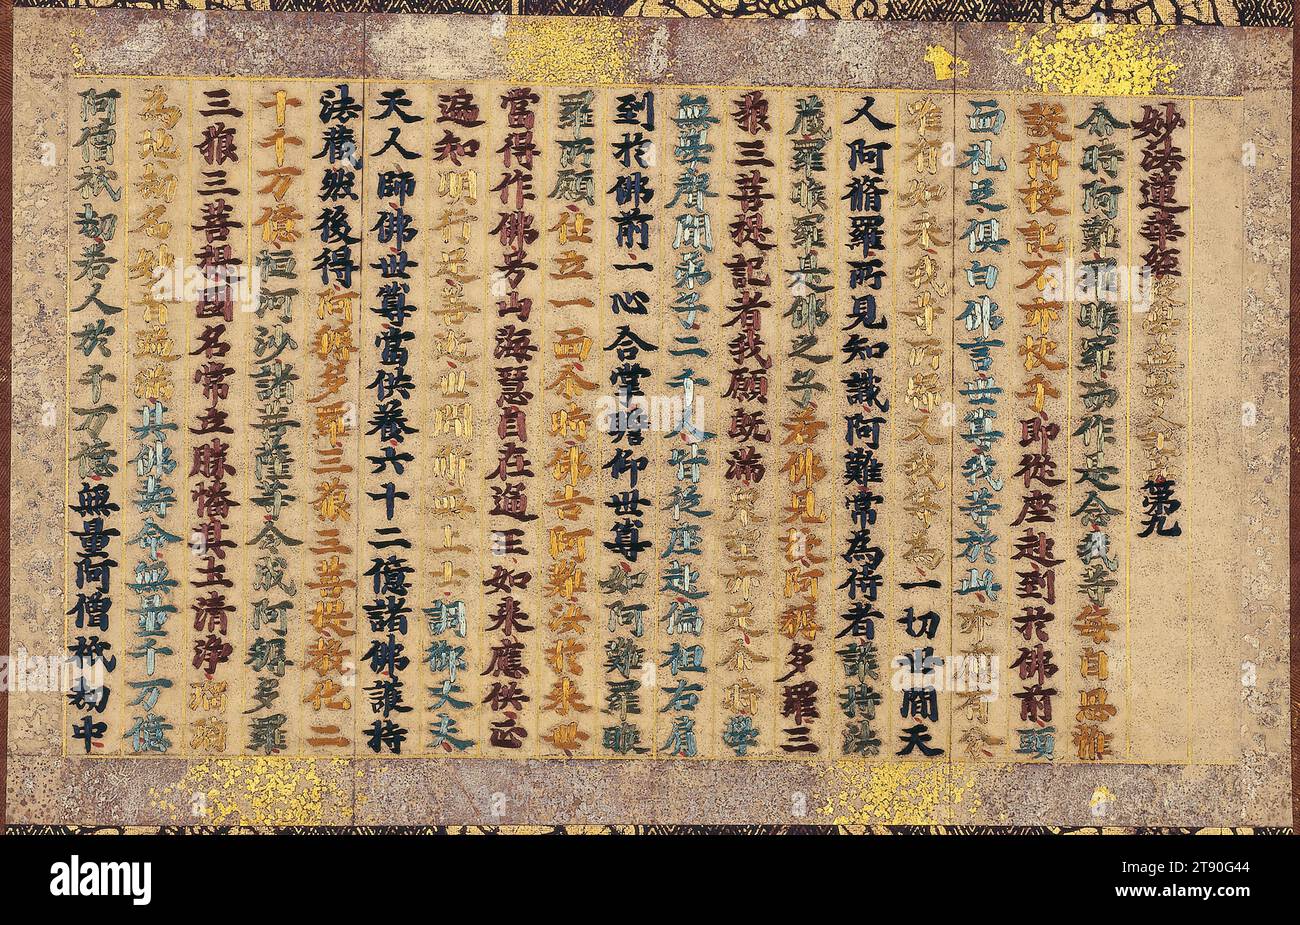 妙法蓮華經授學無學人記品第九
尒時阿難羅睺羅而作是念我等每自思惟
設得授記不亦快乎即從座起到於佛前頭
面礼足俱白佛言世尊我等於此亦應有分
唯有如来我等所歸又我等為一切世間天
人阿脩羅所見知識阿難常為侍者護持法
藏羅睺羅是佛之子若佛見授阿耨多羅三
藐三菩提記者我願既滿衆望亦足尒時學
無學聲聞弟子二千人皆從座起偏袒右肩
到於佛前一心合掌瞻仰世尊如阿難羅睺
羅所願住立一面尒時佛告阿難汝於来世
當得作佛号山海慧自在通王如来應供正
遍知明行足善逝世間解無上士調御丈夫
天人師佛世尊當供養六十二億諸佛護持
法藏然後得阿耨多羅三藐三菩提教化二
十千万億恒河沙諸菩薩等令成阿耨多羅
三藐三菩提國名常立勝幡其土清淨瑠璃
為地劫名妙音遍滿其佛壽命無量千万億
阿僧祇劫若人於千万億無量阿僧祇劫中
alamy
Image ID: 2T90G44
www.alamy.com